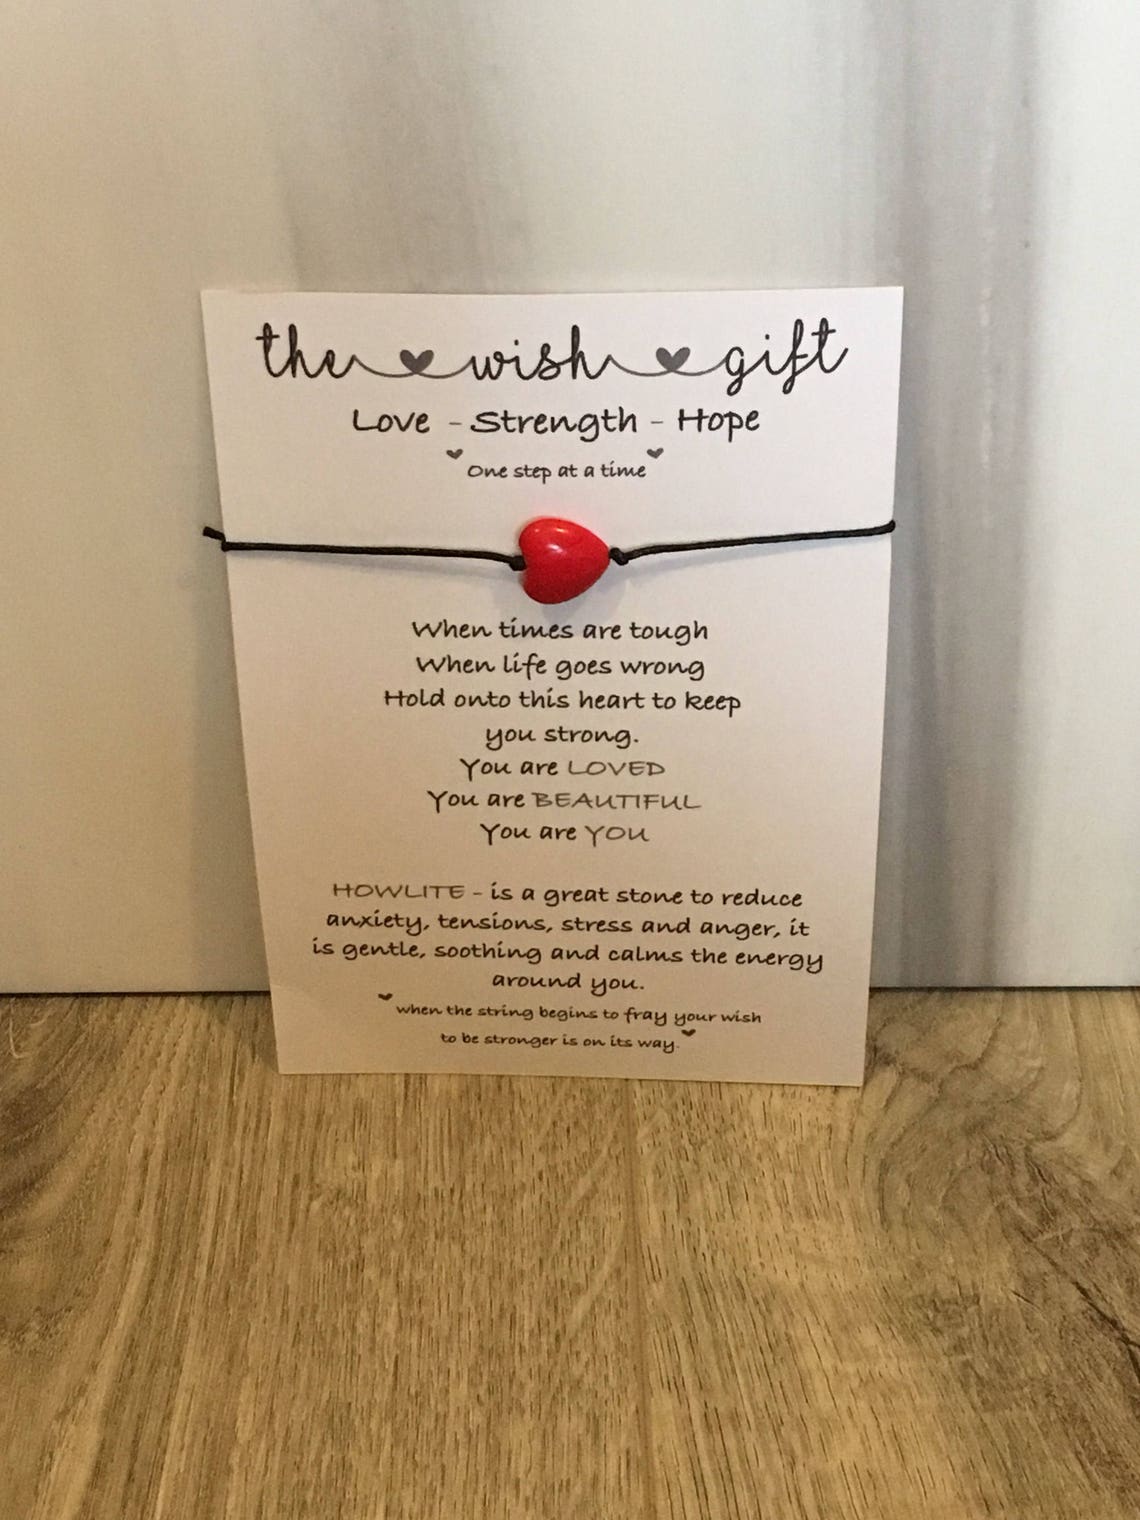 the wish gift
Love - Strength - Hope
One step at a time
When times are tough
When life goes wrong
Hold onto this heart to keep
you strong.
You are LOVED
You are BEAUTIFUL
You are YOU
HOWLITE - is a great stone to reduce
anxiety, tensions, stress and anger, it
is gentle, soothing and calms the energy
around you.
when the string begins to fray your wish
to be stronger is on its way.